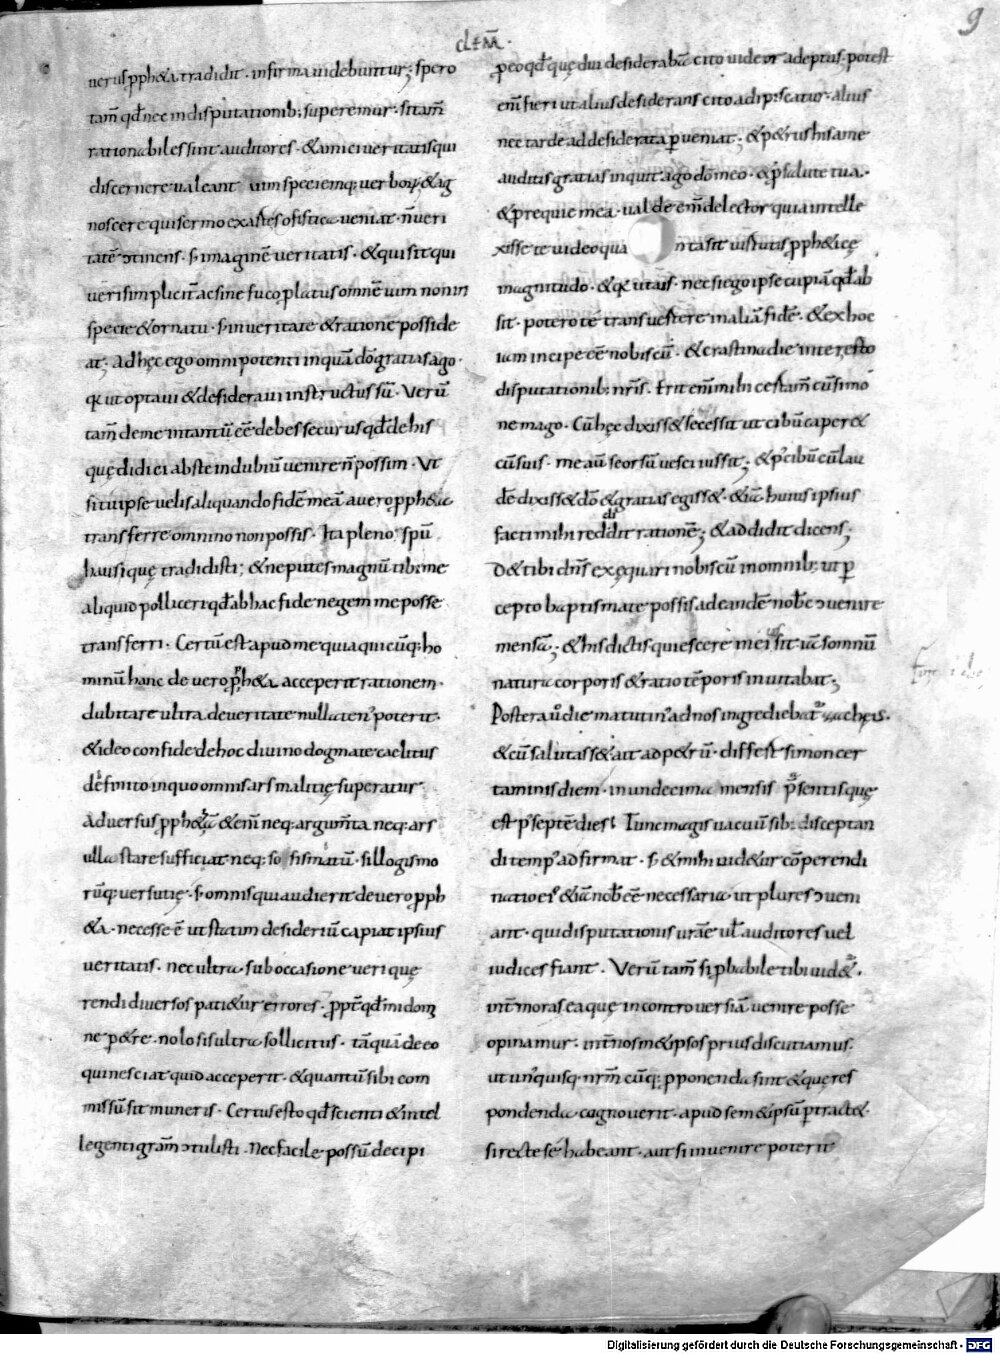 9
clem̄.
uerus ꝓph&a tradidit. infirma uidebuntur; spero
tam̄ qđ nec in disputationib; superemur. si tam̄
rationabiles sint auditores. & amici ueritatis qui
discernere ualeant uim speciemq; uerboꝝ. & ag
noscere qui sermo ex arte sofistica ueniat. n̄ ueri
tatē ɔtinens. s; imaginē ueritatis. & qui sit qui
uerisimpliciť ac sine fuco platus omnē uim non in
specie & ornatu. s; in ueritate & rationē posside
at; ad hęc ego omnipotenti inquā dō gratias ago.
qr ut optaui & desideraui instructus sū. Verū
tam̄ de me intantū eē debes securus qđ de his
quę didici abs te in dubiū uenire n̄ possim. Vt
si tu ipse uelis aliquando fidē meā a uero ꝓph&a
transferre omnino non possis. Ita pleno spū
hausi quę tradidisti; & ne putes magnū tibi me
aliquid polliceri qđ ab hac fide negem me posse
transferri. Certū est apud me quia quicūq; ho
minū hanc de uero ꝓph&a acceperit rationem.
dubitare ultra de ueritate nullaten' poterit.
& ideo confide de hoc diuino dogmate caelitus
definito in quo omnis ars malitię superatur
Aduersus ꝓph&iā & eni neq; argum̄ta neq; ars
ulla stare sufficiat neq; sofismatū. sillogismo
rūq; uersutię. s; omnis qui audierit de uero ꝓph
&a. necesse ē ut statim desideriū capiat ipsius
ueritatis. nec ultra sub occasione ueri quę
rendi diuersos pati&ur errores. ꝓpt̄ qđ mi dom̄
ne p&re. nolo sis ultra sollicitus. tāquā de eo
qui nesciat quid acceperit. & quantū sibi com
missū sit muneris. Certus esto qđ scienti & intel
legenti gram̄ ɔtulisti. Nec facile possū decipi
ꝓ eo qđ quę diu desiderabā cito uideor adeptus. potest
em̄ fieri ut alius desiderans cito adipiscatur. alius
nec tarde ad desiderata ꝑueniat; & p&rus his a me
auditis gratias inquit ago dō meo. & ꝓ salute tua.
& ꝓ requie mea. ualde em̄ delector quia intelle
xisse te uideo qua nta sit uirtutis ꝓph&icę
magnitudo. & qr ut ais. nec si ego ipse cupiā qđ ab
sit. potero te transuertere in aliā fidē. & ex hoc
iam incipe eē nobiscū. & crastina die interesto
disputationib; nr̄is. Erit em̄ mihi certam̄ cū simo
ne mago. Cū hęc dixiss& secessit ut cibū caper&
cū suis. me aū seorsū uesci iussit; & p' cibū cū lau
dē dixiss& dō & gratias egiss&. & iā huius ipsius
facti mihi reddidit rationē; & addidit dicens;
D& tibi dn̄s exęquari nobiscū in omnib; ut ꝑ
cepto baptismate possis ad eandē nob̄c ɔuenire
mensā; & his dictis quiescere me iussit. iā somnū
natura corporis & ratio tēporis inuitabat;
Postera uº die matutin' ad nos ingrediebat' zacheus.
& cū salutass& ait ad p&rū. differt simon cer
taminis diem. in undecima mensis p̄sentis quę
est p' septē dies. Tunc magis uacuū sibi disceptan
di temp' adfirmat. s; & mihi uid&ur cōperendi
natio ei' & iā nob̄ eē necessaria. ut plures ɔueni
ant. qui disputationis ur̄ae uł auditores uel
iudices fiant. Verū tam̄ si ꝓbabile tibi uid&'.
int̄ moras ea quę in controuersiā uenire posse
opinamur. int̄ nosm&ipsos prius discutiamus.
ut un'quisq; nr̄m cūq; ꝓponenda sint & quę res
pondenda cognouerit. apud sem&ipsū ꝑtract&.
si recte se habeant. aut si inuenire poterit
Digitalisierung gefördert durch die Deutsche Forschungsgemeinschaft - DFG